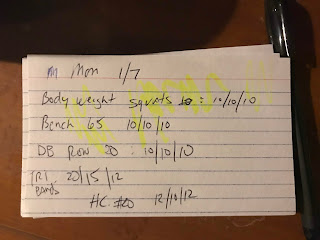 m Mon 1/7
Body weight squats : 10/10/10
Bench 65 10/10/10
DB Row 20 : 10/10/10
TRI 20/15/12
BANDS
HC #20 12/10/12